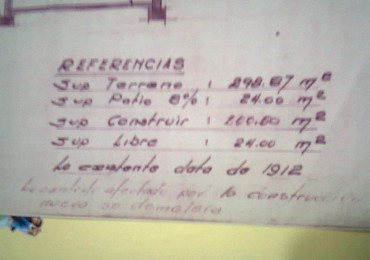 REFERENCIAS
Sup Terreno : 298.87 m²
Sup Patio 8% : 24.00 m²
Sup Construir : m²
Sup Libre : 24.00 m²
Lo existente data de 1912
Lo existente afectado por la construcción
nueva se demolera